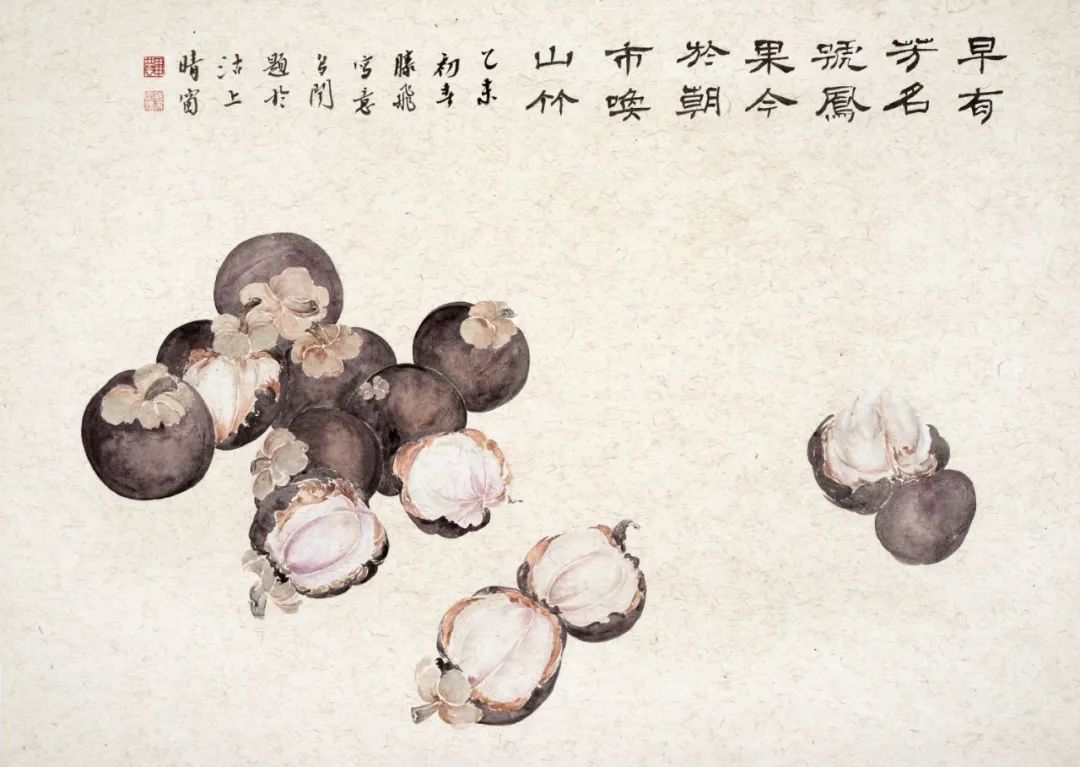 早有
芳名
號鳳
果今
於朝
市喚
山竹
乙未
初春
滕飛
寫意
題於
沽上
晴窗